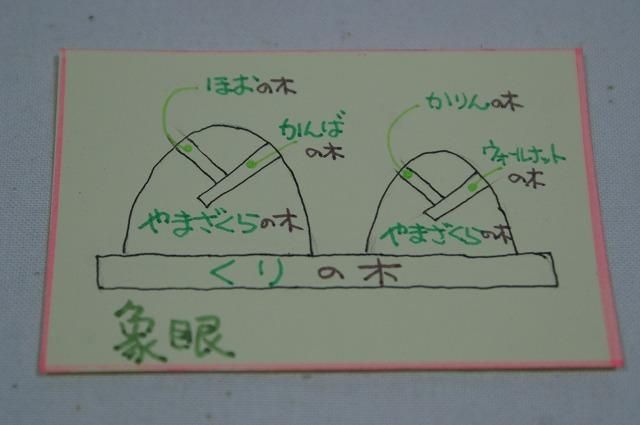 ほおの木
かんば
の木
やまざくらの木
かりんの木
ウォールナット
の木
やまざくらの木
くりの木
象眼